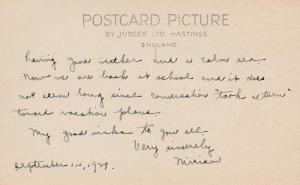 POSTCARD PICTURE
BY JUDGES' LTD. HASTINGS
ENGLAND
having good weather and a calm sea.
Now we are back at school and it does
not seem long since conversation "took a turn"
toward vacation plans.
My good wishes to you all.
Very sincerely
Miriam
September 1, 1929.